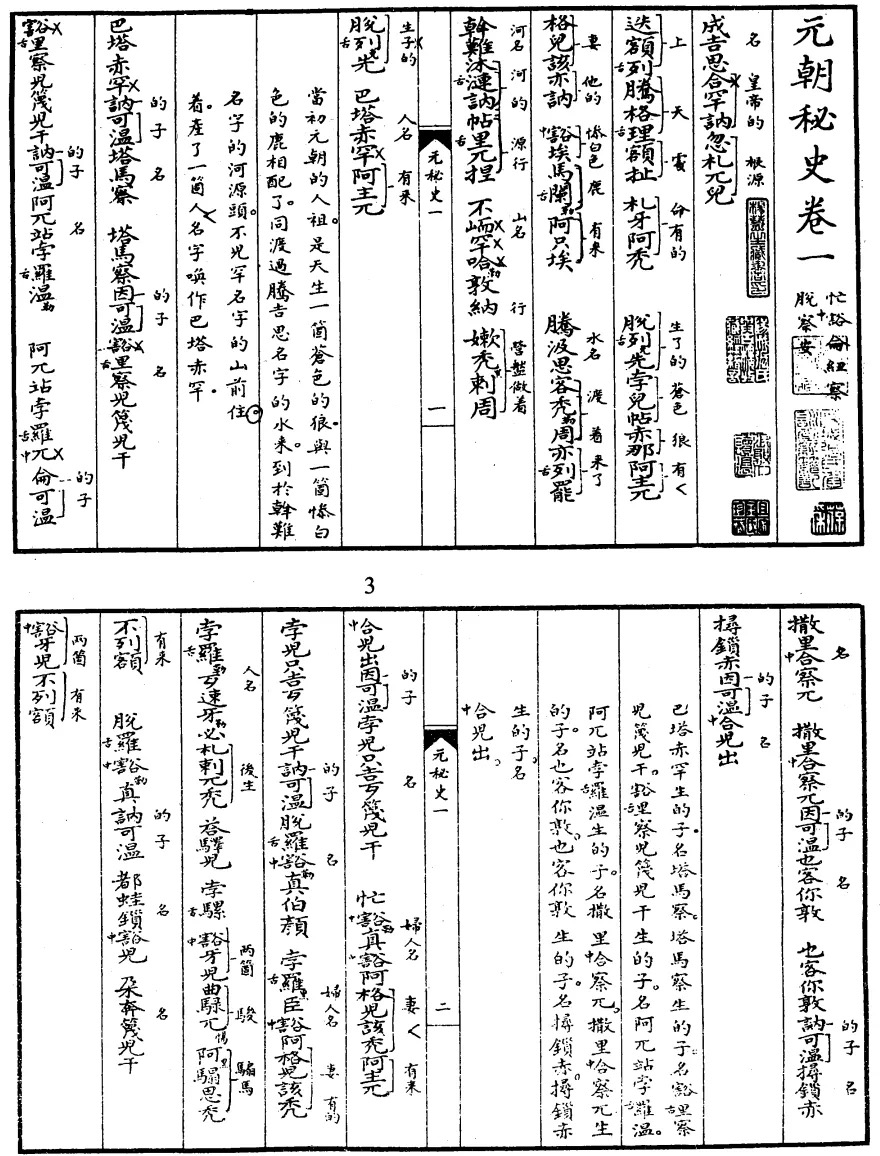 元朝秘史卷一
忙豁侖紐察
脫察安
名 皇帝的 根源
成吉思合罕訥忽札兀兒
上 天 處 命有的 生了的 蒼色 狼 有
迭額列騰格理額扯 札牙阿禿 脫列先孛兒帖赤那阿主兀
妻 他的 慘白色 鹿 有来 水名 渡 着 来了
格兒該亦訥 豁埃馬闌勒阿只埃 騰汲思客禿勒周亦列罷
河名 河的 源行 山名 行 營盤做着
斡難沐漣訥帖里兀捏 不峏罕哈勒敦納 嫩禿剌周
元秘史一
一
生子的 人名 有来
脫列先 巴塔赤罕阿主兀
當初元朝的人祖。是天生一箇蒼色的狼。與一箇慘白
色的鹿相配了。同渡過騰吉思名字的水来。到於斡難
名字的河源頭。不兒罕名字的山前住
着。產了一箇人名字喚作巴塔赤罕。
的子 名 的子 名
巴塔赤罕訥可温塔馬察 塔馬察因可温豁里察兒篾兒干
的子 名 的子
豁里察兒篾兒干訥可温阿兀站孛羅温勒 阿兀站孛羅兀侖可温
3
名 的子 名 的子 名
撒里合察兀 撒里合察兀因可温也客你敦 也客你敦訥可温撏鎖赤
的子 名
撏鎖赤因可温合兒出
巴塔赤罕生的子。名塔馬察。塔馬察生的子。名豁里察
兒篾兒干。豁里察兒篾兒干生的子。名阿兀站孛羅温。
阿兀站孛羅温生的子。名撒里合察兀。撒里合察兀生
的子。名也客你敦。也客你敦生的子。名撏鎖赤。撏鎖赤
生的子。名
合兒出。
元秘史一
二
的子 名 婦人名 妻 有来
合兒出因可温孛兒只吉歹篾兒干 忙豁勒真豁阿格兒該禿阿主兀
的子 名 婦人名 妻 有的
孛兒只吉歹篾兒干訥可温脫羅豁勒真伯顏 孛羅黑臣豁阿格兒該禿
人名 後生 两箇 駿 騸馬
孛羅勒歹速牙勒必札剌兀禿 荅驛兒 孛騾 豁牙兒曲魯兀惕阿黑騸思禿
有来 的子 名 名
不列額 脫羅豁勒真訥可温 都蛙鎖豁兒 朶奔篾兒干
两箇 有来
豁牙兒不列額